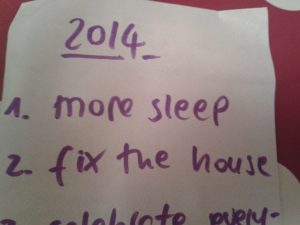 2014
1. more sleep
2. fix the house
3. celebrate every-